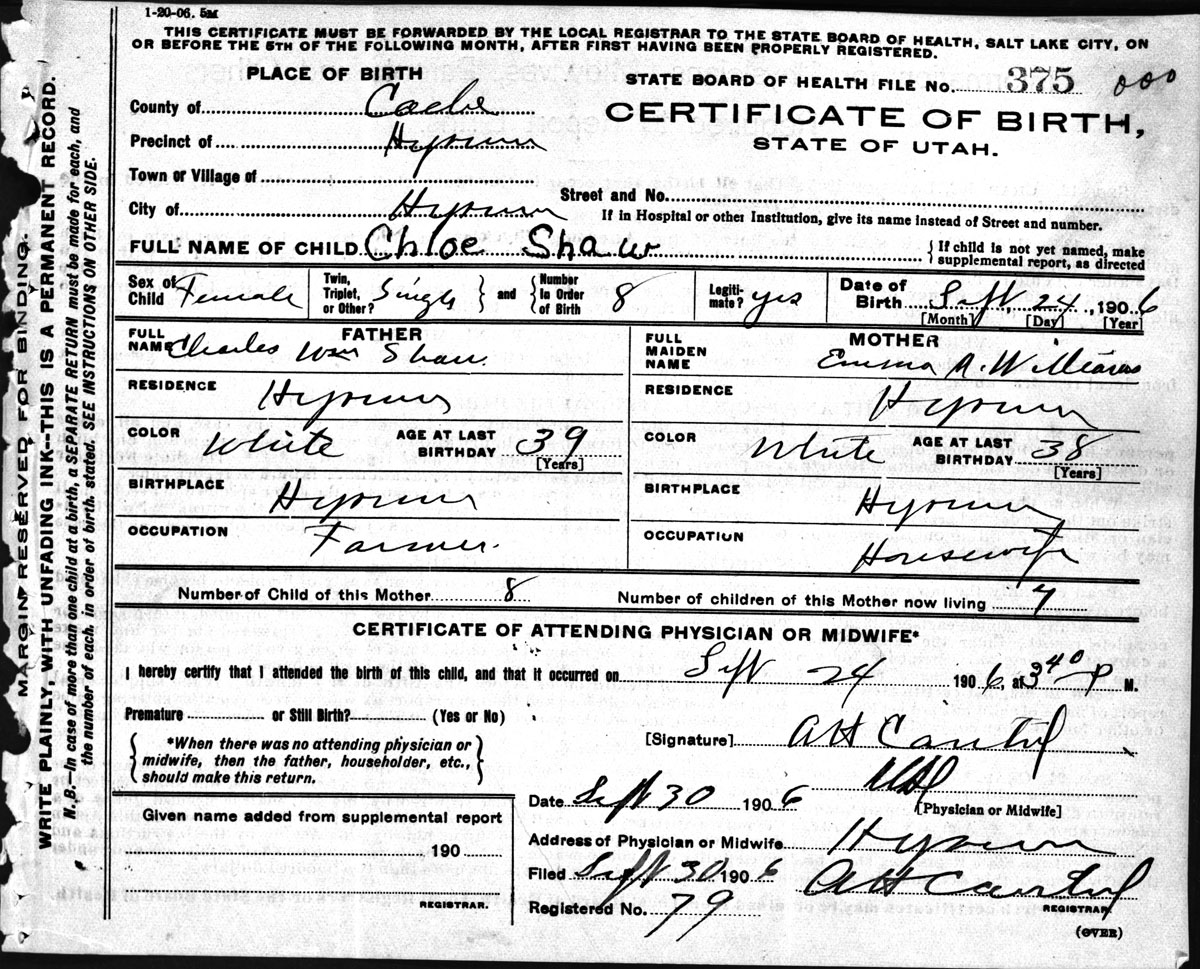 1-20-06. 5M
THIS CERTIFICATE MUST BE FORWARDED BY THE LOCAL REGISTRAR TO THE STATE BOARD OF HEALTH, SALT LAKE CITY, ON
OR BEFORE THE 5TH OF THE FOLLOWING MONTH, AFTER FIRST HAVING BEEN PROPERLY REGISTERED.
MARGIN RESERVED FOR BINDING.
WRITE PLAINLY, WITH UNFADING INK--THIS IS A PERMANENT RECORD.
N.B.-In case of more than one child at a birth, a SEPARATE RETURN must be made for each, and
the number of each, in order of birth. stated. SEE INSTRUCTIONS ON OTHER SIDE.
PLACE OF BIRTH
STATE BOARD OF HEALTH FILE No. 375 000
County of Cache
CERTIFICATE OF BIRTH,
STATE OF UTAH.
Precinct of Hyrum
Town or Village of
Street and No.
City of Hyrum
If in Hospital or other Institution, give its name instead of Street and number.
FULL NAME OF CHILD Chloe Shaw
{If child is not yet named, make
supplemental report, as directed
Sex of Child Female
Twin, Triplet, or Other? Single } and { Number in Order of Birth 8
Legitimate? yes
Date of Birth Sept 24, 1906
[Month] [Day] [Year
FATHER
FULL NAME Charles Wm Shaw.
RESIDENCE Hyrum
COLOR White AGE AT LAST BIRTHDAY 39
[Years]
BIRTHPLACE Hyrum
OCCUPATION Farmer.
MOTHER
FULL MAIDEN NAME Emma A. Williams
RESIDENCE Hyrum
COLOR White AGE AT LAST BIRTHDAY 38
[Years]
BIRTHPLACE Hyrum
OCCUPATION Housewife
Number of Child of this Mother 8 Number of children of this Mother now living 7
CERTIFICATE OF ATTENDING PHYSICIAN OR MIDWIFE*
I hereby certify that I attended the birth of this child, and that it occurred on Sept 24 1906, at 3 40 P M.
Premature or Still Birth? (Yes or No)
{*When there was no attending physician or
midwife, then the father, householder, etc.,
should make this return.}
[Signature]
Date Sept 30 1906
[Physician or Midwife]
Address of Physician or Midwife Hyrum
Filed Sept 30 1906
REGISTRAR.
Registered No. 79
(OVER)
Given name added from supplemental report
190
REGISTRAR.